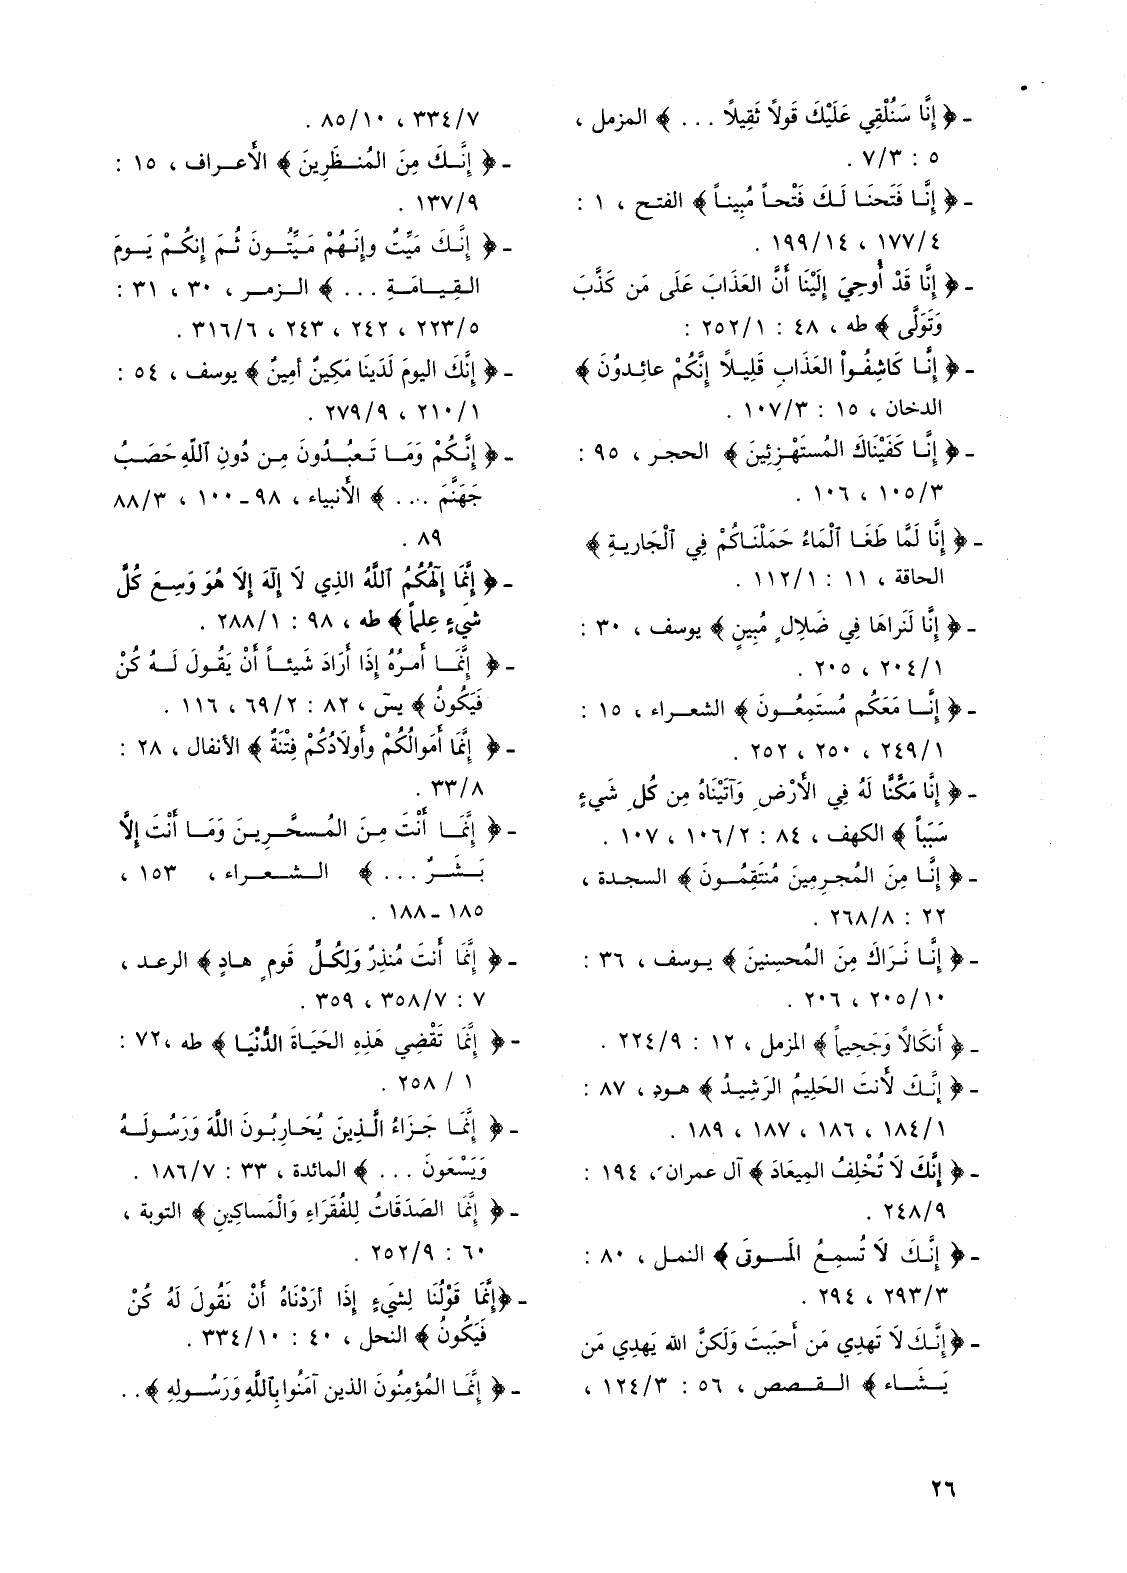 - ﴿ إِنَّا سَنُلْقِي عَلَيْكَ قَولًا ثَقِيلًا ... ﴾ المزمل ،
٥ : ٧/٣ .
- ﴿ إِنَّا فَتَحنَا لَكَ فَتْحاً مُبِيناً ﴾ الفتح ، ١ :
١٧٧/٤ ، ١٩٩/١٤ .
- ﴿ إِنَّا قَدْ أُوحِيَ إِلَيْنَا أَنَّ العَذَابَ عَلَى مَن كَذَّبَ
وَتَوَلَّى ﴾ طه ، ٤٨ : ٢٥٢/١ :
- ﴿ إِنَّا كَاشِفُواْ العَذَابِ قَلِيلًا إِنَّكُمْ عائِدوُنَ ﴾
الدخان ، ١٥ : ١٠٧/٣ .
- ﴿ إِنَّا كَفَيْنَاكَ المُستَهْزِئِينَ ﴾ الحجر ، ٩٥ :
١٠٥/٣ ، ١٠٦ .
- ﴿ إِنَّا لَمَّا طَغَا ٱلْمَاءُ حَمَلْنَاكُمْ فِي ٱلْجَاريةِ ﴾
الحاقة ، ١١ : ١١٢/١ .
- ﴿ إِنَّا لَنَراهَا فِي ضَلالٍ مُبِينٍ ﴾ يوسف ، ٣٠ :
٢٠٤/١ ، ٢٠٥ .
- ﴿ إِنَّا مَعَكُم مُستَمِعُونَ ﴾ الشعراء ، ١٥ :
٢٤٩/١ ، ٢٥٠ ، ٢٥٢ .
- ﴿ إِنَّا مَكَّنَّا لَهُ فِي الأَرْضِ وَآتَيْنَاهُ مِن كُلِ شَيءٍ
سَبَباً ﴾ الكهف ، ٨٤ : ١٠٦/٢ ، ١٠٧ .
- ﴿ إِنَّا مِنَ المُجرِمِينَ مُنتَقِمُونَ ﴾ السجدة ،
٢٢ : ٢٦٨/٨ .
- ﴿ إِنَّا نَرَاكَ مِنَ المُحسِنِينَ ﴾ يوسف ، ٣٦ :
٢٠٥/١٠ ، ٢٠٦ .
- ﴿ أَنكَالًا وَجَحِيماً ﴾ المزمل ، ١٢ : ٢٢٤/٩ .
- ﴿ إِنَّكَ لَأَنتَ الحَلِيمُ الرَشِيدُ ﴾ هود ، ٨٧ :
١٨٤/١ ، ١٨٦ ، ١٨٧ ، ١٨٩ .
- ﴿ إِنَّكَ لَا تُخْلِفُ المِيعَادَ ﴾ آل عمران ، ١٩٤ :
٢٤٨/٩ .
- ﴿ إِنَّكَ لَا تُسمِعُ المَوتَى ﴾ النمل ، ٨٠ :
٢٩٣/٣ ، ٢٩٤ .
- ﴿ إِنَّكَ لَا تَهدِي مَن أَحبَبتَ وَلَكنَّ الله يَهدِي مَن
يَشَاء ﴾ القصص ، ٥٦ : ١٢٤/٣ ،
٣٣٤/٧ ، ٨٥/١٠ .
- ﴿ إِنَّكَ مِنَ المُنظَرِينَ ﴾ الأعراف ، ١٥ :
١٣٧/٩ .
- ﴿ إِنَّكَ مَيِّتٌ وإِنَهُمْ مَيِّتُونَ ثُمَ إِنكُمْ يَومَ
القِيَامَةِ ... ﴾ الزمر ، ٣٠ ، ٣١ :
٢٢٣/٥ ، ٢٤٢ ، ٢٤٣ ، ٣١٦/٦ .
- ﴿ إِنَّكَ اليومَ لَدَينَا مَكِينٌ أَمِينٌ ﴾ يوسف ، ٥٤ :
٢١٠/١ ، ٢٧٩/٩ .
- ﴿ إِنَّكُمْ وَمَا تَعبُدُونَ مِن دُونِ ٱللَّهِ حَصَبُ
جَهَنَّمَ ... ﴾ الأنبياء ، ٩٨-١٠٠ ، ٨٨/٣ ،
٨٩ .
- ﴿ إِنَّمَا إِلَهُكُمُ ٱللَّهُ الذِي لَا إِلَهَ إِلا هُوَ وَسِعَ كُلَّ
شيءٍ عِلماً ﴾ طه ، ٩٨ : ٢٨٨/١ .
- ﴿ إِنَّمَا أَمرُهُ إِذَا أَرَادَ شَيئاً أَنْ يَقُولَ لَهُ كُنْ
فَيَكُونُ ﴾ يسَ ، ٨٢ : ٦٩/٢ ، ١١٦ .
- ﴿ إِنَّمَا أَموالُكُمْ وأَولَادُكُمْ فِتْنَةٌ ﴾ الأنفال ، ٢٨ :
٣٣/٨ .
- ﴿ إِنَّمَا أَنْتَ مِنَ المُسحَّرِينَ وَمَا أَنْتَ إِلاَّ
بَشَرٌ ... ﴾ الشعراء ، ١٥٣ ،
١٨٥ - ١٨٨ .
- ﴿ إِنَّمَا أَنتَ مُنذِرٌ وَلِكُلِّ قَومٍ هادٍ ﴾ الرعد ،
٧ : ٣٥٨/٧ ، ٣٥٩ .
- ﴿ إِنَّمَا تَقْضِي هَذِهِ الحَيَاةَ الدُّنْيَا ﴾ طه ،٧٢ :
١ / ٢٥٨ .
- ﴿ إِنَّمَا جَزَاءُ الَّذِينَ يُحَارِبُونَ اللَّهَ وَرَسُولَهُ
وَيَسْعَونَ ... ﴾ المائدة ، ٣٣ : ١٨٦/٧ .
- ﴿ إِنَّمَا الصَدَقَاتُ لِلفُقَرَاءِ وَالْمَساكِينِ ﴾ التوبة ،
٦٠ : ٢٥٢/٩ .
- ﴿إِنَّمَا قَوْلُنَا لِشَيءٍ إِذَا أَرَدْنَاهُ أَنْ نَقُولَ لَهُ كُنْ
فَيَكُونُ ﴾ النحل ، ٤٠ : ٣٣٤/١٠ .
- ﴿ إِنَّمَا المُؤمِنُونَ الذين آمَنُوا بِٱللَّهِ وَرَسُولِهِ ﴾ . .
٢٦